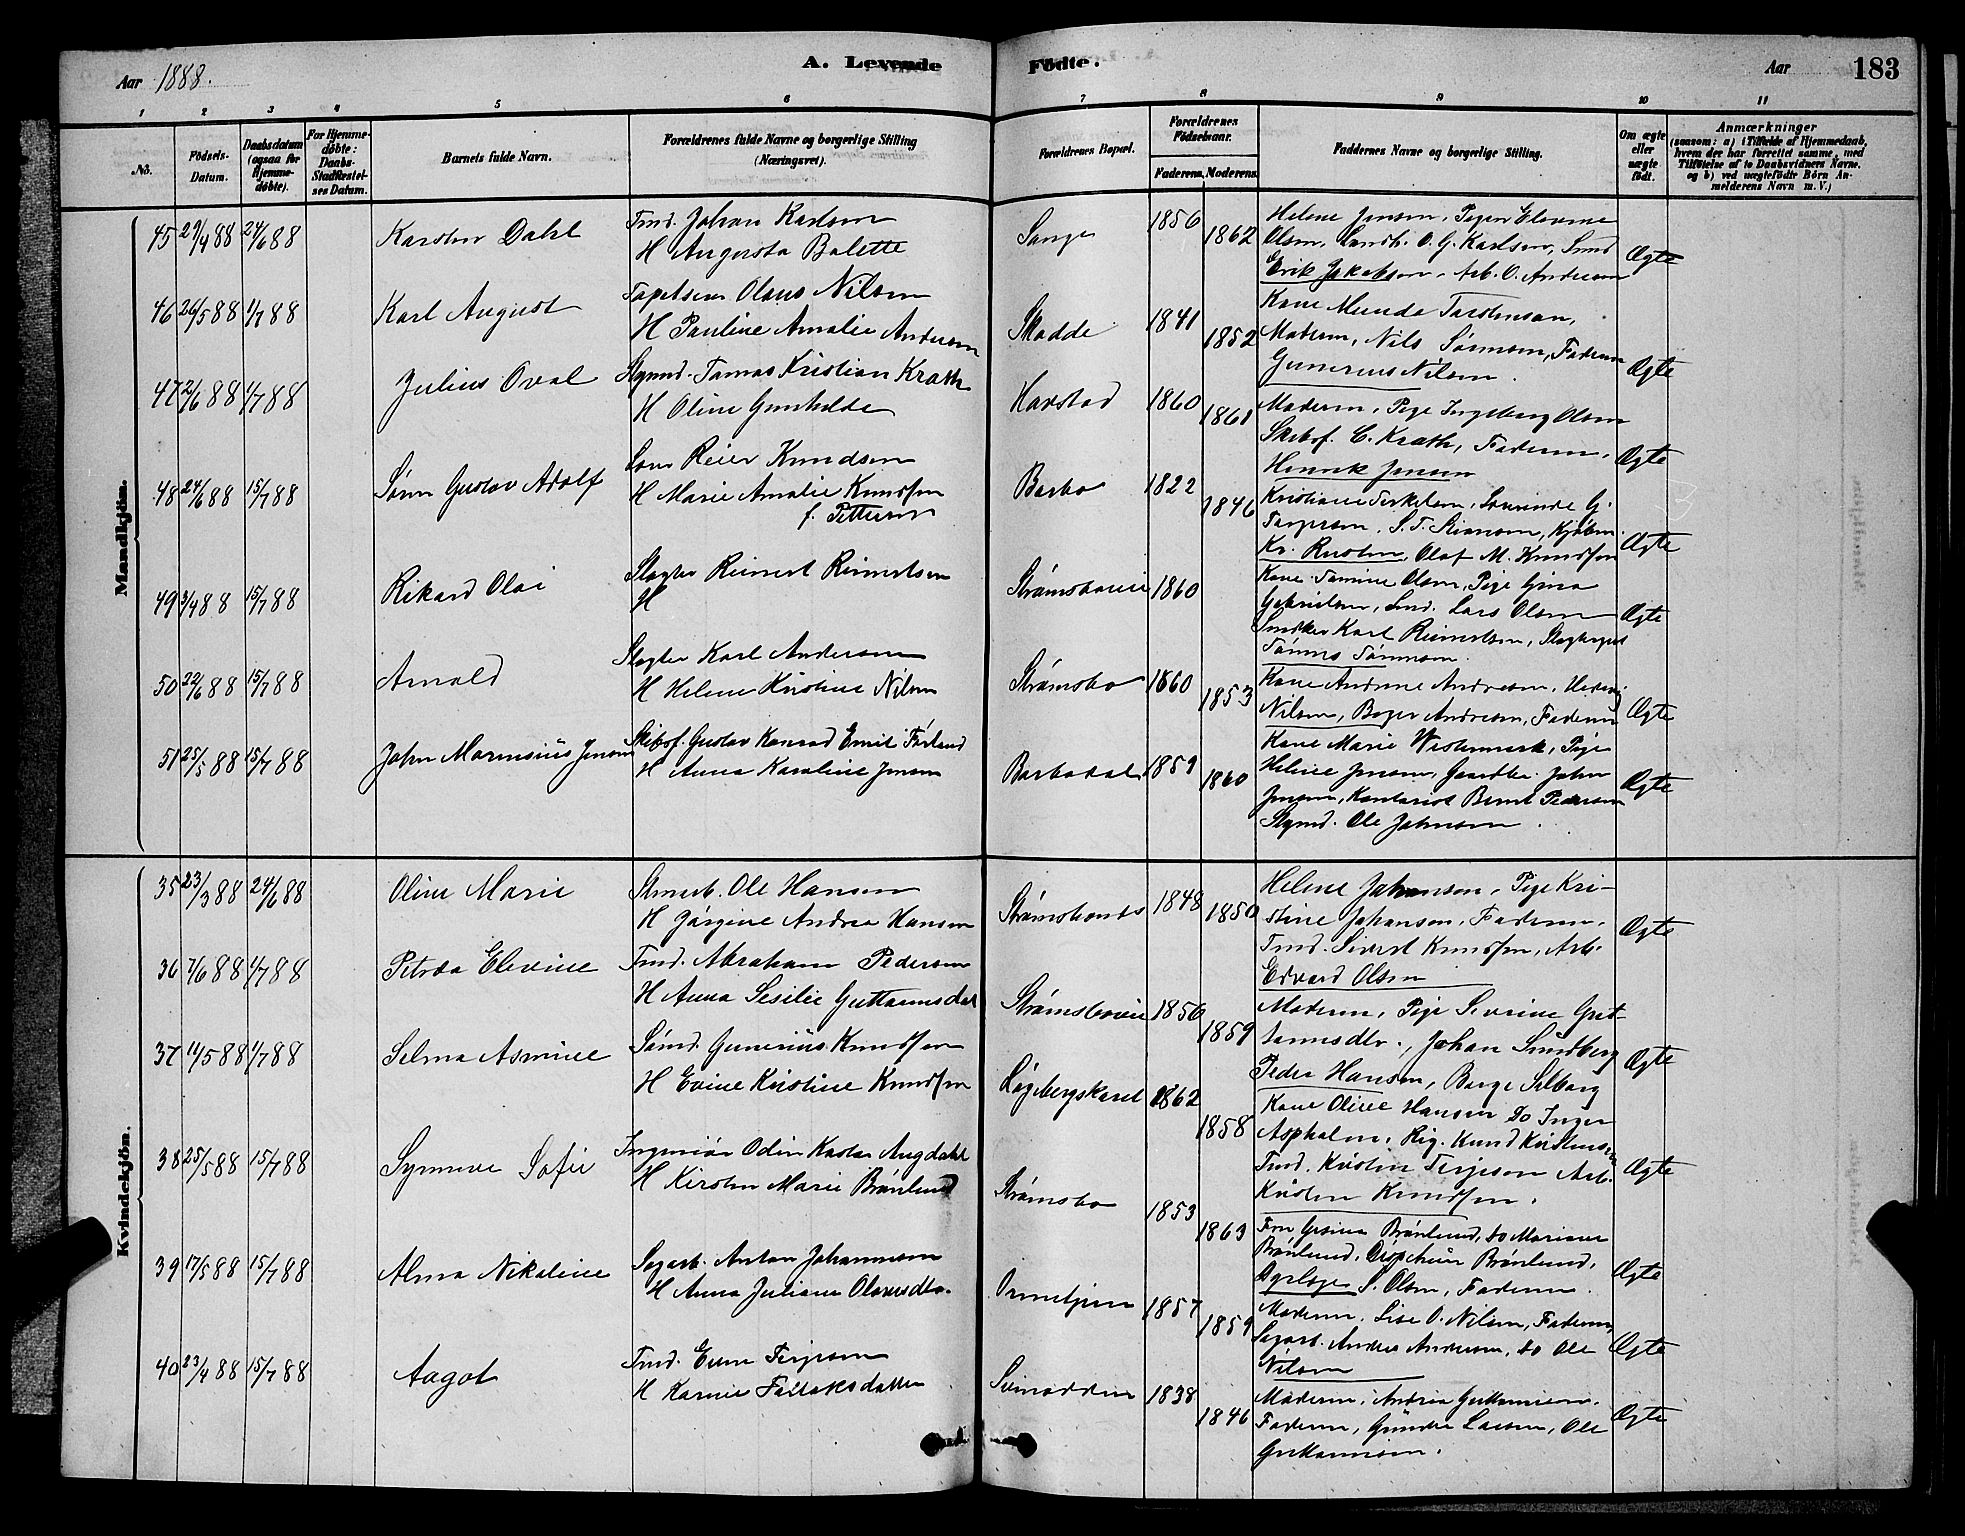 Aar 1888.
A. Levende
Fødte.
Aar
183
1 2 3 4 5 6 7 8 9 10 11
No.
Fødsels-
Datum.
Daabsdatum
(ogsaa for
Hjemme-
døbte).
For Hjemme-
døbte:
Daabs-
Stadfæstel-
ses Datum.
Barnets fulde Navn.
Forældrenes fulde Navne og borgerlige Stilling
(Næringsvei).
Forældrenes Bopæl.
Forældrenes
Fødselsaar.
Faderens. Moderens.
Faddernes Navne og borgerlige Stilling.
Om ægte
eller
uægte
født.
Anmærkninger
(saasom: a) i Tilfælde af Hjemmedaab,
hvem der har forrettet samme, med
Tilføielse af to Daabsvidners Navne.
og b) ved uægtefødte Børn An-
melderens Navn m. V.)
Mandkjön.
45 29/4 88 24/6 88 Karsten Dahl
Tmd. Johan Karlsen
H Augusta Bolette
Songe 1856 1862
Helene Jensen, Pigen Elevine
Olsen, Landh. O. G. Karlsen, Smd
Erik Jakobsen, Arb. O. Andersen
Ægte
46 26/5 88 1/7 88 Karl August
Olaus Nilsen
H Pauline Amalie Andersen
Skodde 1841 1852
Kone Torstensen,
Moderen, Nils Sørensen, Faderen
Gunerius Nilsen.
Ægte
47 2/6 88 1/7 88 Julius Oval
Stymd. Tomas Kristian Krath
H Oline Gunhilde
Havstad 1860 1861
Moderen, Pige Ingeborg Olsen
Skibsf. C. Krath, Faderen,
Henrik Jensen
Ægte
48 24/6 88 15/7 88 Søren Gustav Adolf
Reier Knudsen
H Marie Amalie Knudsen
f. Pettersen
Barbo 1822 1846
Kristiane Terkelsen, G.
Torjersen, S. T. Kjøbm.
Kr. Olaf M. Knudsen
Ægte
49 3/4 88 15/7 88 Rikard Olai
Slagter Reinert Reinertsen
H
Strømsboveie 1860
Kone Tomine Olsen, Pige Gina
Gabrielsen, Smd. Lars Olsen
Snedker Karl Reinertsen,
Tønnes Tønnesen.
Ægte
50 22/6 88 15/7 88 Arnold
Slagter Karl Andersen
H Helene Kristine Nilsen
Strømsbo 1860 1853
Kone Andrine Andresen,
Nilsen, Andresen, Faderen
Ægte
51 25/5 88 15/7 88 John Marensius Jensen
Skibsf. Gustav Konrad Emil
H Anna Karoline Jensen
Barbodal 1859 1860
Kone Marie Westermark, Pige
Helene Jensen, Gaardbr. John
Jensen, Kontorist Bernt Pedersen
Stymd. Ole Johnsen.
Ægte
Kvindekjön.
35 23/3 88 24/6 88 Oline Marie
Ole Hansen
H Jørgine Andrea Hansen
1848 1850
Helene Johansen, Pige Kri-
stine Johansen, Faderen,
Tmd. Sivert Knudsen, Arb.
Edvard Olsen
Ægte
36 7/6 88 1/7 88 Petrea Elevine
Tmd. Abraham Pedersen
H Anna Sesilie Guttormsdat
Strømsboveie 1856 1859
Moderen, Pige Severine Gut-
tormsdtr., Johan Sundberg
Peder Hansen, Børge Solberg
Ægte
37 11/5 88 1/7 88 Selma Asmine
Sømd. Gunerius Knudsen
H Evine Kristine Knudsen
1862 1858
Kone Oline Hansen Do Inger
Aspholm, Rig. Knud Kristensen
Tmd. Kristen Terjesen Arb.
Kristen Knudsen.
Ægte
38 25/5 88 15/7 88 Synnøve Sofie
Ingeniør Odin Karsten Augdahl
H Kirsten Marie Brønlund
Strømsbo 1853 1863
Fru Gesine Brønlund, do Mariane
Brønlund, Brønlund,
Dyrlæge S. Olsen, Faderen.
Ægte
39 17/5 88 15/7 88 Alma Nikoline
Sagarb. Anton Johannesen
H Anna Juliane Olavesdtr.
1857 1859
Moderen, Lise O. Nilsen, Faderen,
Sagarb. Andres Andersen, do Ole
Nilsen
Ægte
40 23/4 88 15/7 88 Aagot
Tmd. Even Terjesen
H Karnie
Svinodden 1838 1846
Moderen, Andrea Guttormsen,
Faderen, Gunder Larsen, Ole
Guttormsen.
Ægte